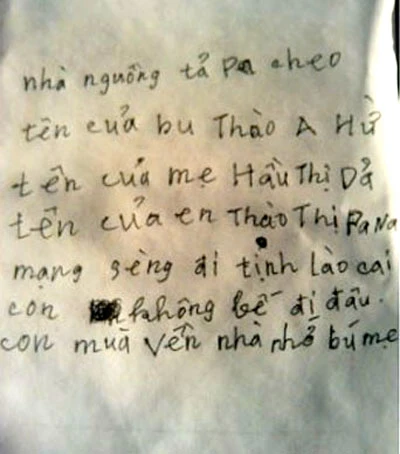 nhà nguồng tả Pa cheo
tên của bu Thào A Hử
tên của mẹ Hầu Thị Dả
tên của en Thào Thị Pa Na
mạng sèng đi tịnh lào cai
con không bế đị đâu.
con muà vên nhà nhở bú mẹ